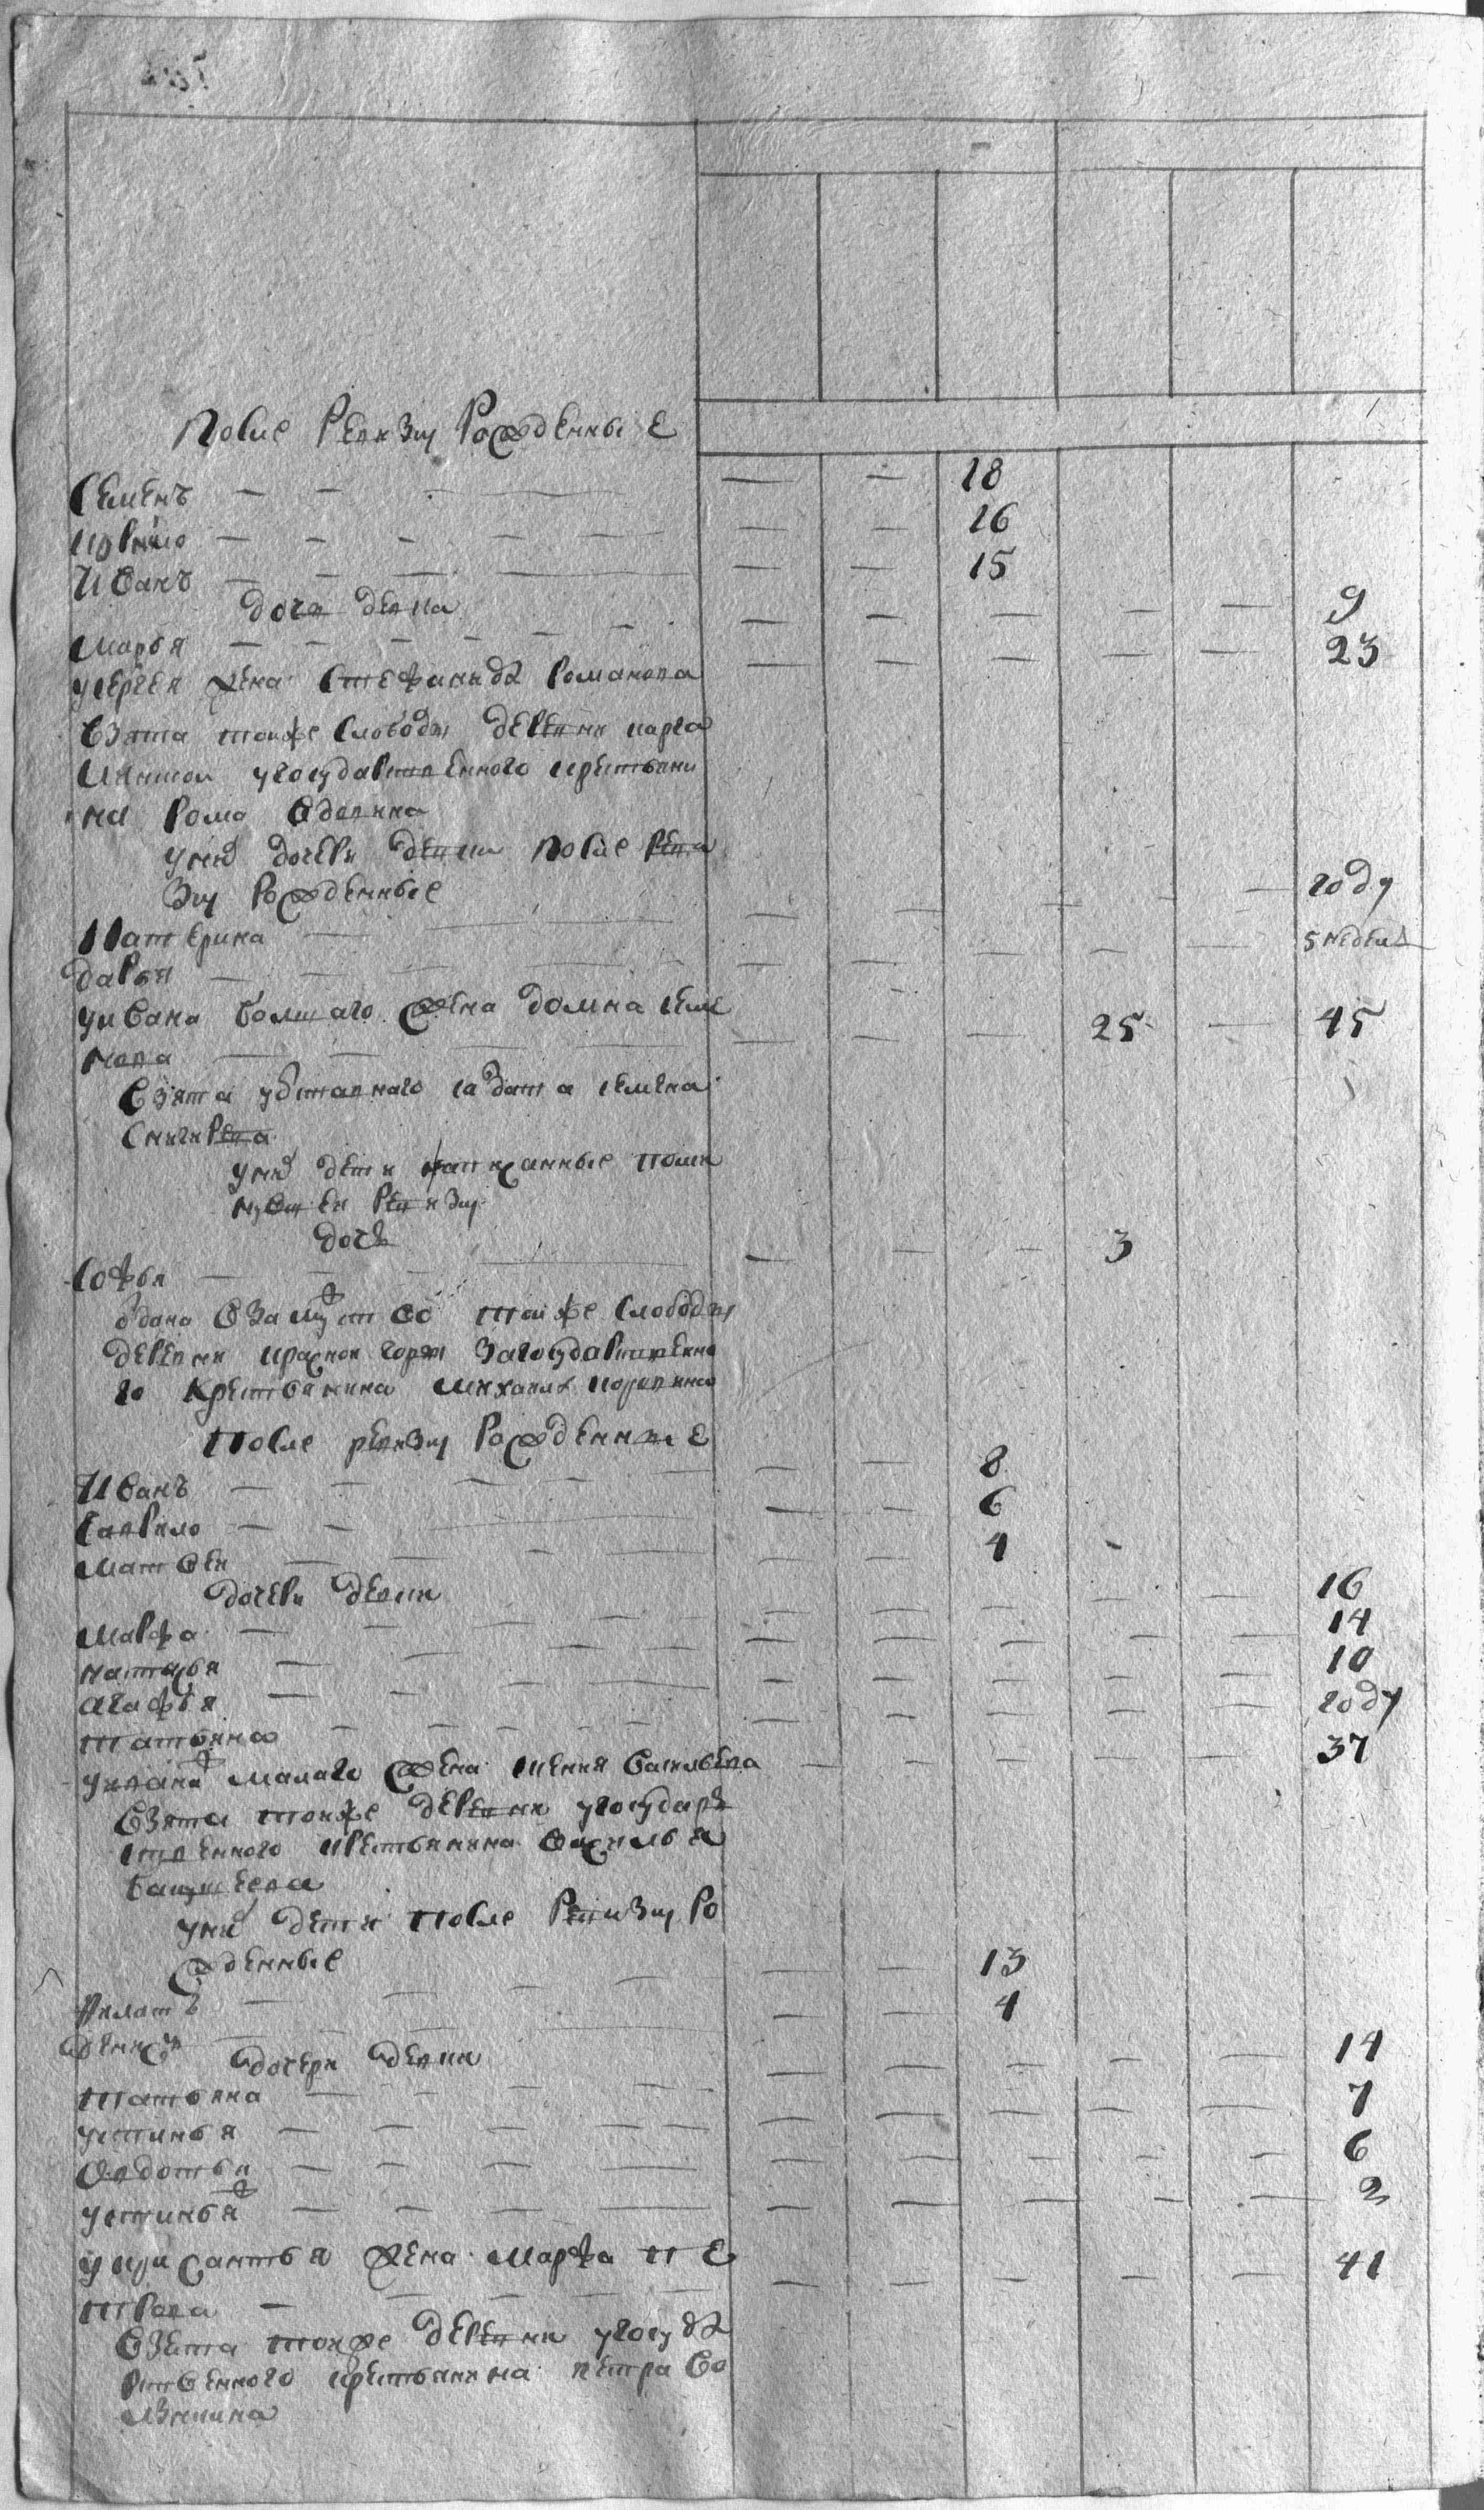 После Ревизии Рожденные
Семенъ — — — — — 18
— — — — — — 16
Иванъ — — — — — 15
дочь девка
Марья — — — — — — 9
у Сергея жена Стефанида Романова — — — — — 23
Взята тойже Слободы деревни
у государственного крестьяни
на Рома
у них дочери девки После Реви
зии Рожденные
Катерина — — — — — — году
Дарья — — — — — — 5 недель
у Ивана болшаго жена домна Семе
нова — — — — — 25 — 45
Взята уотставнаго салдата Семена
Снигирева
у них дети написанные в последней Ревизии
дочь
Софья — — — — 3
Одана Взамужство тойже Слободы
деревни красной горы Загосударственно
го Крестьянина Михаила
После ревизии Рожденные
Иванъ — — — — — 8
Гаврило — — — — — 6
Матвей — — — — — 4
дочери девки
Марфа — — — — — — 16
Наталья — — — — — — 14
Агафья — — — — — — 10
Татьяна — — — — — — году
у Ивана Малаго жена Ксения Васильева — — — — 37
Взята тойже деревни угосудар
ственного крестьянина Василья
у них дети После Ревизии Ро
жденные
Филатъ — — — — — 13
Денисъ — — — — — 4
дочери девки
Татьяна — — — — — — 14
Устинья — — — — — — 7
Федотья — — — — — — 6
Устинья — — — — — — 2
у Крисантья жена Марфа Пе
трова — — — — — — 41
Взята тойже деревни угосуда
рственного крестьянина Петра